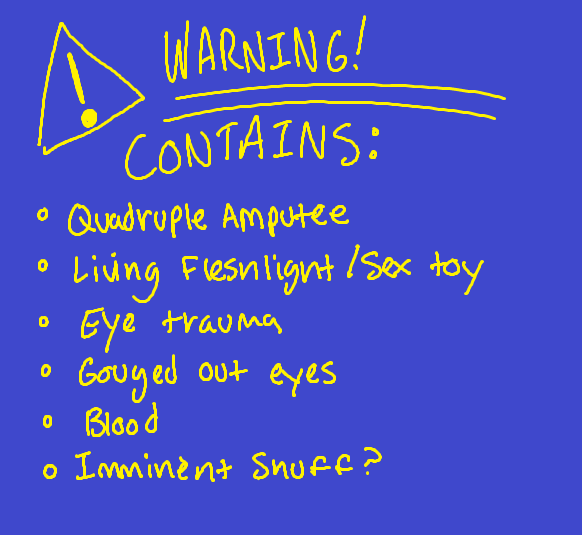 WARNING!
CONTAINS:
Quadruple Amputee
Living Fleshlight/Sex toy
Eye trauma
Gouged out eyes
Blood
Imminent Snuff?